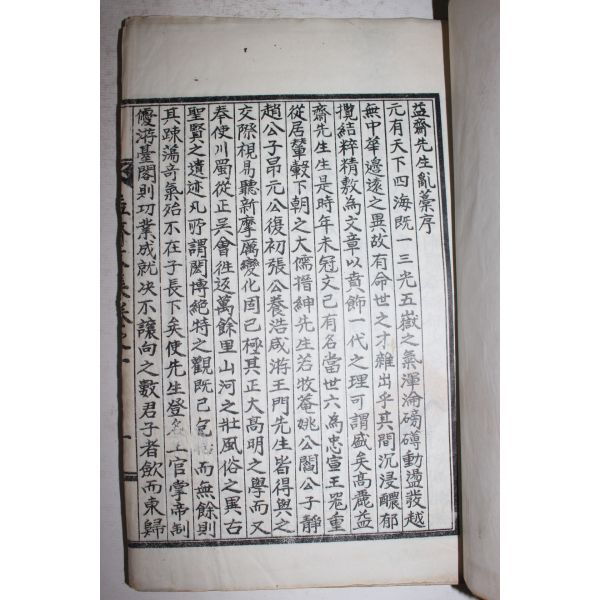 益齋先生亂藁序
元有天下四海既一三光五嶽之氣渾淪磅礴動盪發越
無中華邊遠之異故有命世之才雜出乎其間沉浸醲郁
攬結粹精敷為文章以賁飾一代之理可謂盛矣高麗益
齋先生生是時年未冠文已有名當世大為忠宣王器重
從居輦轂下朝之大儒搢紳先生若牧菴姚公閻公子靜
趙公子昂元公復初張公養浩咸游王門先生皆得與之
交際視易聽新摩厲變化固已極其正大高明之學而又
奉使川蜀從正吳會往返萬餘里山河之壯風俗之異古
聖賢之遺迹凡所謂閎博絶特之觀既已包括而無餘則
其疎蕩奇氣殆不在子長下矣使先生登名王官掌帝制
優游臺閣則功業成就决不讓向之數君子者歛而東歸
益齋集卷之一